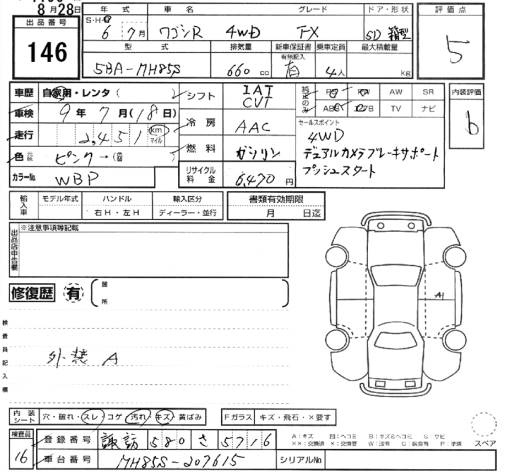 8月28日
出品番号
146
年式 車名 グレード ドア・形状
S・H・R 6年7月 ワゴンR 4WD FX 5D 箱型
型式 排気量 新車保証書 乗車定員 最大積載量
有無記入
5BA-MH85S 660cc 有 4人 kg
評価点
5
車歴 自家用・レンタ( )
車検 9年7月(18日)
走行 2,451 km マイル
色 ピンク→(
カラーNo. WBP
シフト 1AT CVT
冷房 AAC
燃料 ガソリン
リサイクル料金 6,470円
AW SR
TV ナビ
セールスポイント
4WD
デュアルカメラブレーキサポート
プッシュスタート
内装評価
b
輸入車 モデル年式 ハンドル 輸入区分
右H・左H ディーラー・並行
書類有効期限
月 日迄
出品店申告欄
※注意事項等記載
修復歴 有
箇所
検査員記入欄
外装 A
A1
内装シート 穴・破れ・スレ コゲ 汚れ キズ 黄ばみ
Fガラス キズ・飛石・×要す
検査員
16
登録番号 諏訪 580 さ 5716
車台番号 MH85S-207615
シリアルNo.
スペア